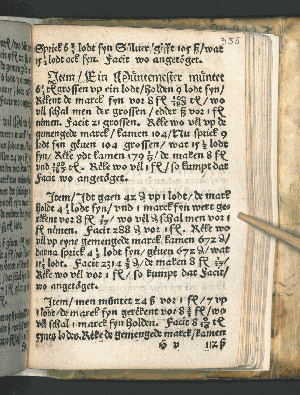 355
Sprick 6⅔ lodt fyn Sülver/ gifft 105 ß/ wat
lodt ock fyn. Facit wo angetöget.
Item/ Ein Müntemester müntet
grossen vp ein lodt/ holden 9 lodt fyn/
Rekent de marck fyn vor 8 fl /wo
vel schal men der grossen/ edder ß vor 1 fl
nimen. Facit 21 grossen. Reke wo vel vp de
gemengede marck/ kamen 104/ Nu sprick 9
lodt fyn geuen 104 grossen/ wat lodt
fyn? Reke ydt kamen 179 /de maken 8 fl
vnd fl. Reke wo vel 1 fl/ so kumpt dat
Facit wo angetöget.
Item/ Idt gaen 42 ₰ vp 1 lodt/ de marck
holt 4½ lodt fyn/ vnd 1 marck fyn wert ge-
rekent vor 8 fl /wo vel ₰ schal men vor 1
fl nimen. Facit 288 ₰ vor 1 fl. Reke wo
vel vp eyne gemengede marck kamen 672 ₰/
Darna sprick 4½ lodt fyn/ geuen 672 ₰/ wat
lodt. Facit ₰/ de maken 8 fl
Reke wo vel vor 1 fl/ so kumpt dat Facit/
wo angetöget.
Item/ men müntet 24 ß vor 1 fl/ 7 vp
1 lodt/ de marck fyn gerekent vor 8 fl/ wo
vel schal 1 marck fyn holden. Facit 8
fynes lodes. Reke de gemengede marck/ kamen
112 ß